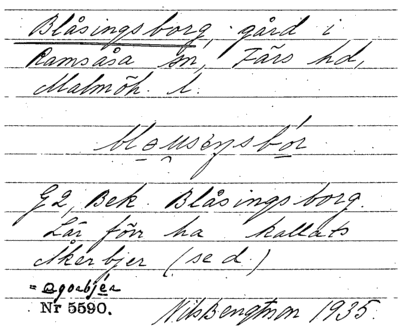 Blåsingsborg, gård i
Ramsåsa sn, Färs hd,
Malmöh. l.
blɑusɛŋsbɔr
G2, Bek. Blåsingsborg.
Lär förr ha kallats
Åkerbjer (se d.)
= agərbjær
Nr 5590. Nils Bengtsson 1935.